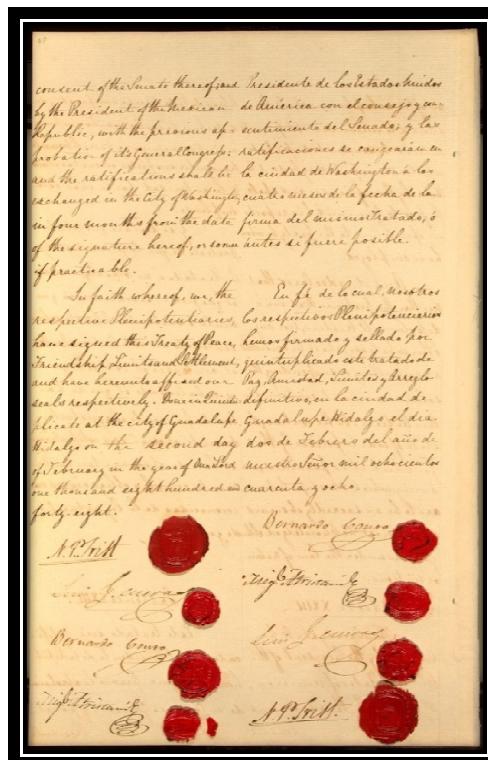 consent of the Senate thereof; and
by the President of the Mexican
Republic, with the previous ap-
probation of its General Congress;
and the ratifications shall be
exchanged in the City of Washington,
in four months from the date
of the signature hereof, or sooner
if practicable.
In faith whereof, we, the
respective Plenipotentiaries,
have signed this Treaty of Peace,
Friendship, Limits and Settlement,
and have hereunto affixed our
seals respectively. Done in Quintu-
plicate at the city of Guadalupe
Hidalgo on the second day
of February in the year of Our Lord
one thousand eight hundred and
forty-eight.
N.P. Trist
Luis G. Cuevas
Bernardo Couto
Migl. Atristain
Presidente de los Estados Unidos
de America con el consejo y con-
sentimiento del Senado; y las
ratificaciones se cangearán en
la ciudad de Washington a los
cuatro meses de la fecha de la
firma del mismo Tratado, ó
antes si fuere posible.
En fé de lo cual, nosotros
los respectivos Plenipotenciarios
hemos firmado y sellado por
quintuplicado este tratado de
Paz, Amistad, Limites y Arreglo
definitivo, en la ciudad de
Guadalupe Hidalgo el dia
dos de Febrero del año de
nuestro Señor mil ochocientos
cuarenta y ocho.
Bernardo Couto
Migl. Atristain
Luis G. Cuevas
N.P. Trist.